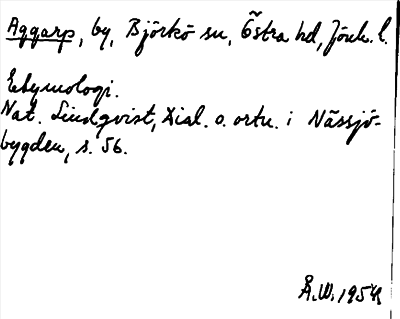 Aggarp, by, Björkö sn, Östra hd, Jönk. l.
Etymologi.
Nat. Lindqvist, Dial. o. ortn. i Nässjö-
bygden, s. 56.
Å.W. 1954